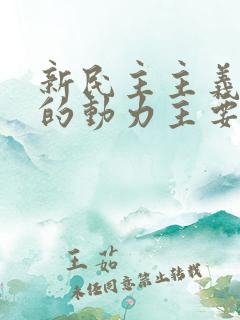 新民主主義
的動力主要
王茹
未经同意禁止转载